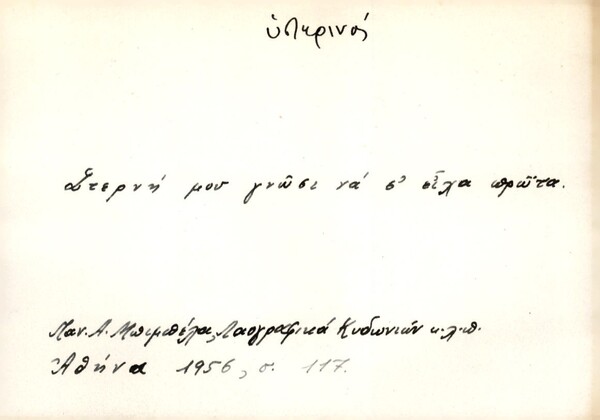 ὑστερινός
Στερνή μου γνῶσι νά σ' εἶχα πρῶτα.
Παν. Α. Μπιμπέλα, Λαογραφικά Κυδωνιών κ.λ.π.
Ἀθήνα 1956, σ. 117.